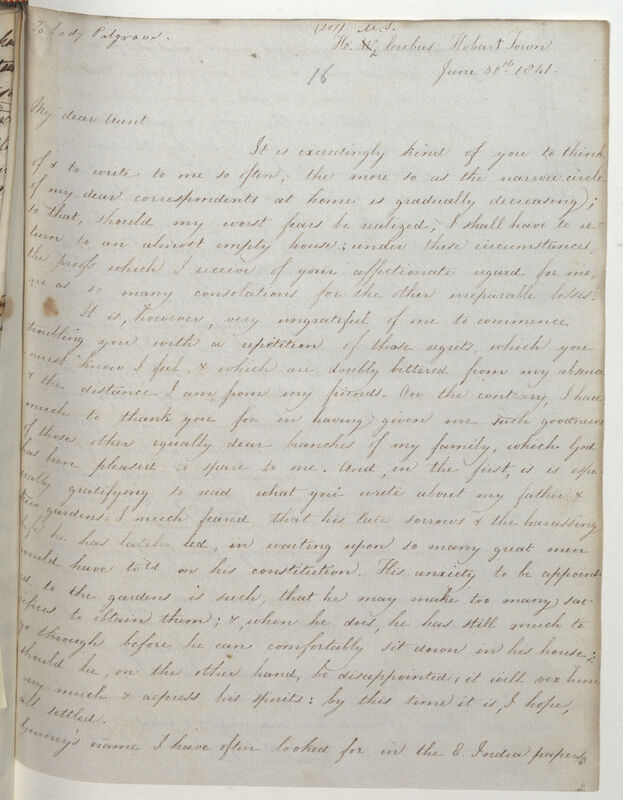 To Lady Palgrave.
(201) M.S.
H. Erebus, Hobart Town
16
June 30th 1841.
My dear Aunt
It is exceedingly kind of you to think
of & to write to me so often; the more so as the narrow circle
of my dear correspondents at home is gradually decreasing;
so that, should my worst fears be realized, I shall have to re-
turn to an almost empty house: under these circumstances,
the proofs which I receive of your affectionate regard for me,
are as so many consolations for the other irreparable losses.
It is, however, very ungrateful of me to commence
troubling you with a repetition of those regrets, which you
must know I feel, & which are doubly bittered from my absence
& the distance I am from my friends. On the contrary, I have
much to thank you for in having given me such good news
of those other equally dear branches of my family, which God
has been pleased to spare to me. And, in the first, is is espe-
cially gratifying to read what you write about my father &
Kew gardens: I much feared that his late sorrows & the harassing
life he has lately led, in waiting upon so many great men
would have told on his constitution. His anxiety to be appoint-
ed to the gardens is such, that he may make too many sac-
rifices to obtain them; &, when he does, he has still much to
go through before he can comfortably sit down in his house:
should he, on the other hand, be disappointed, it will vex him
very much & depress his spirits: by this time it is, I hope,
all settled.
Gurney's name I have often looked for in the E. India papers